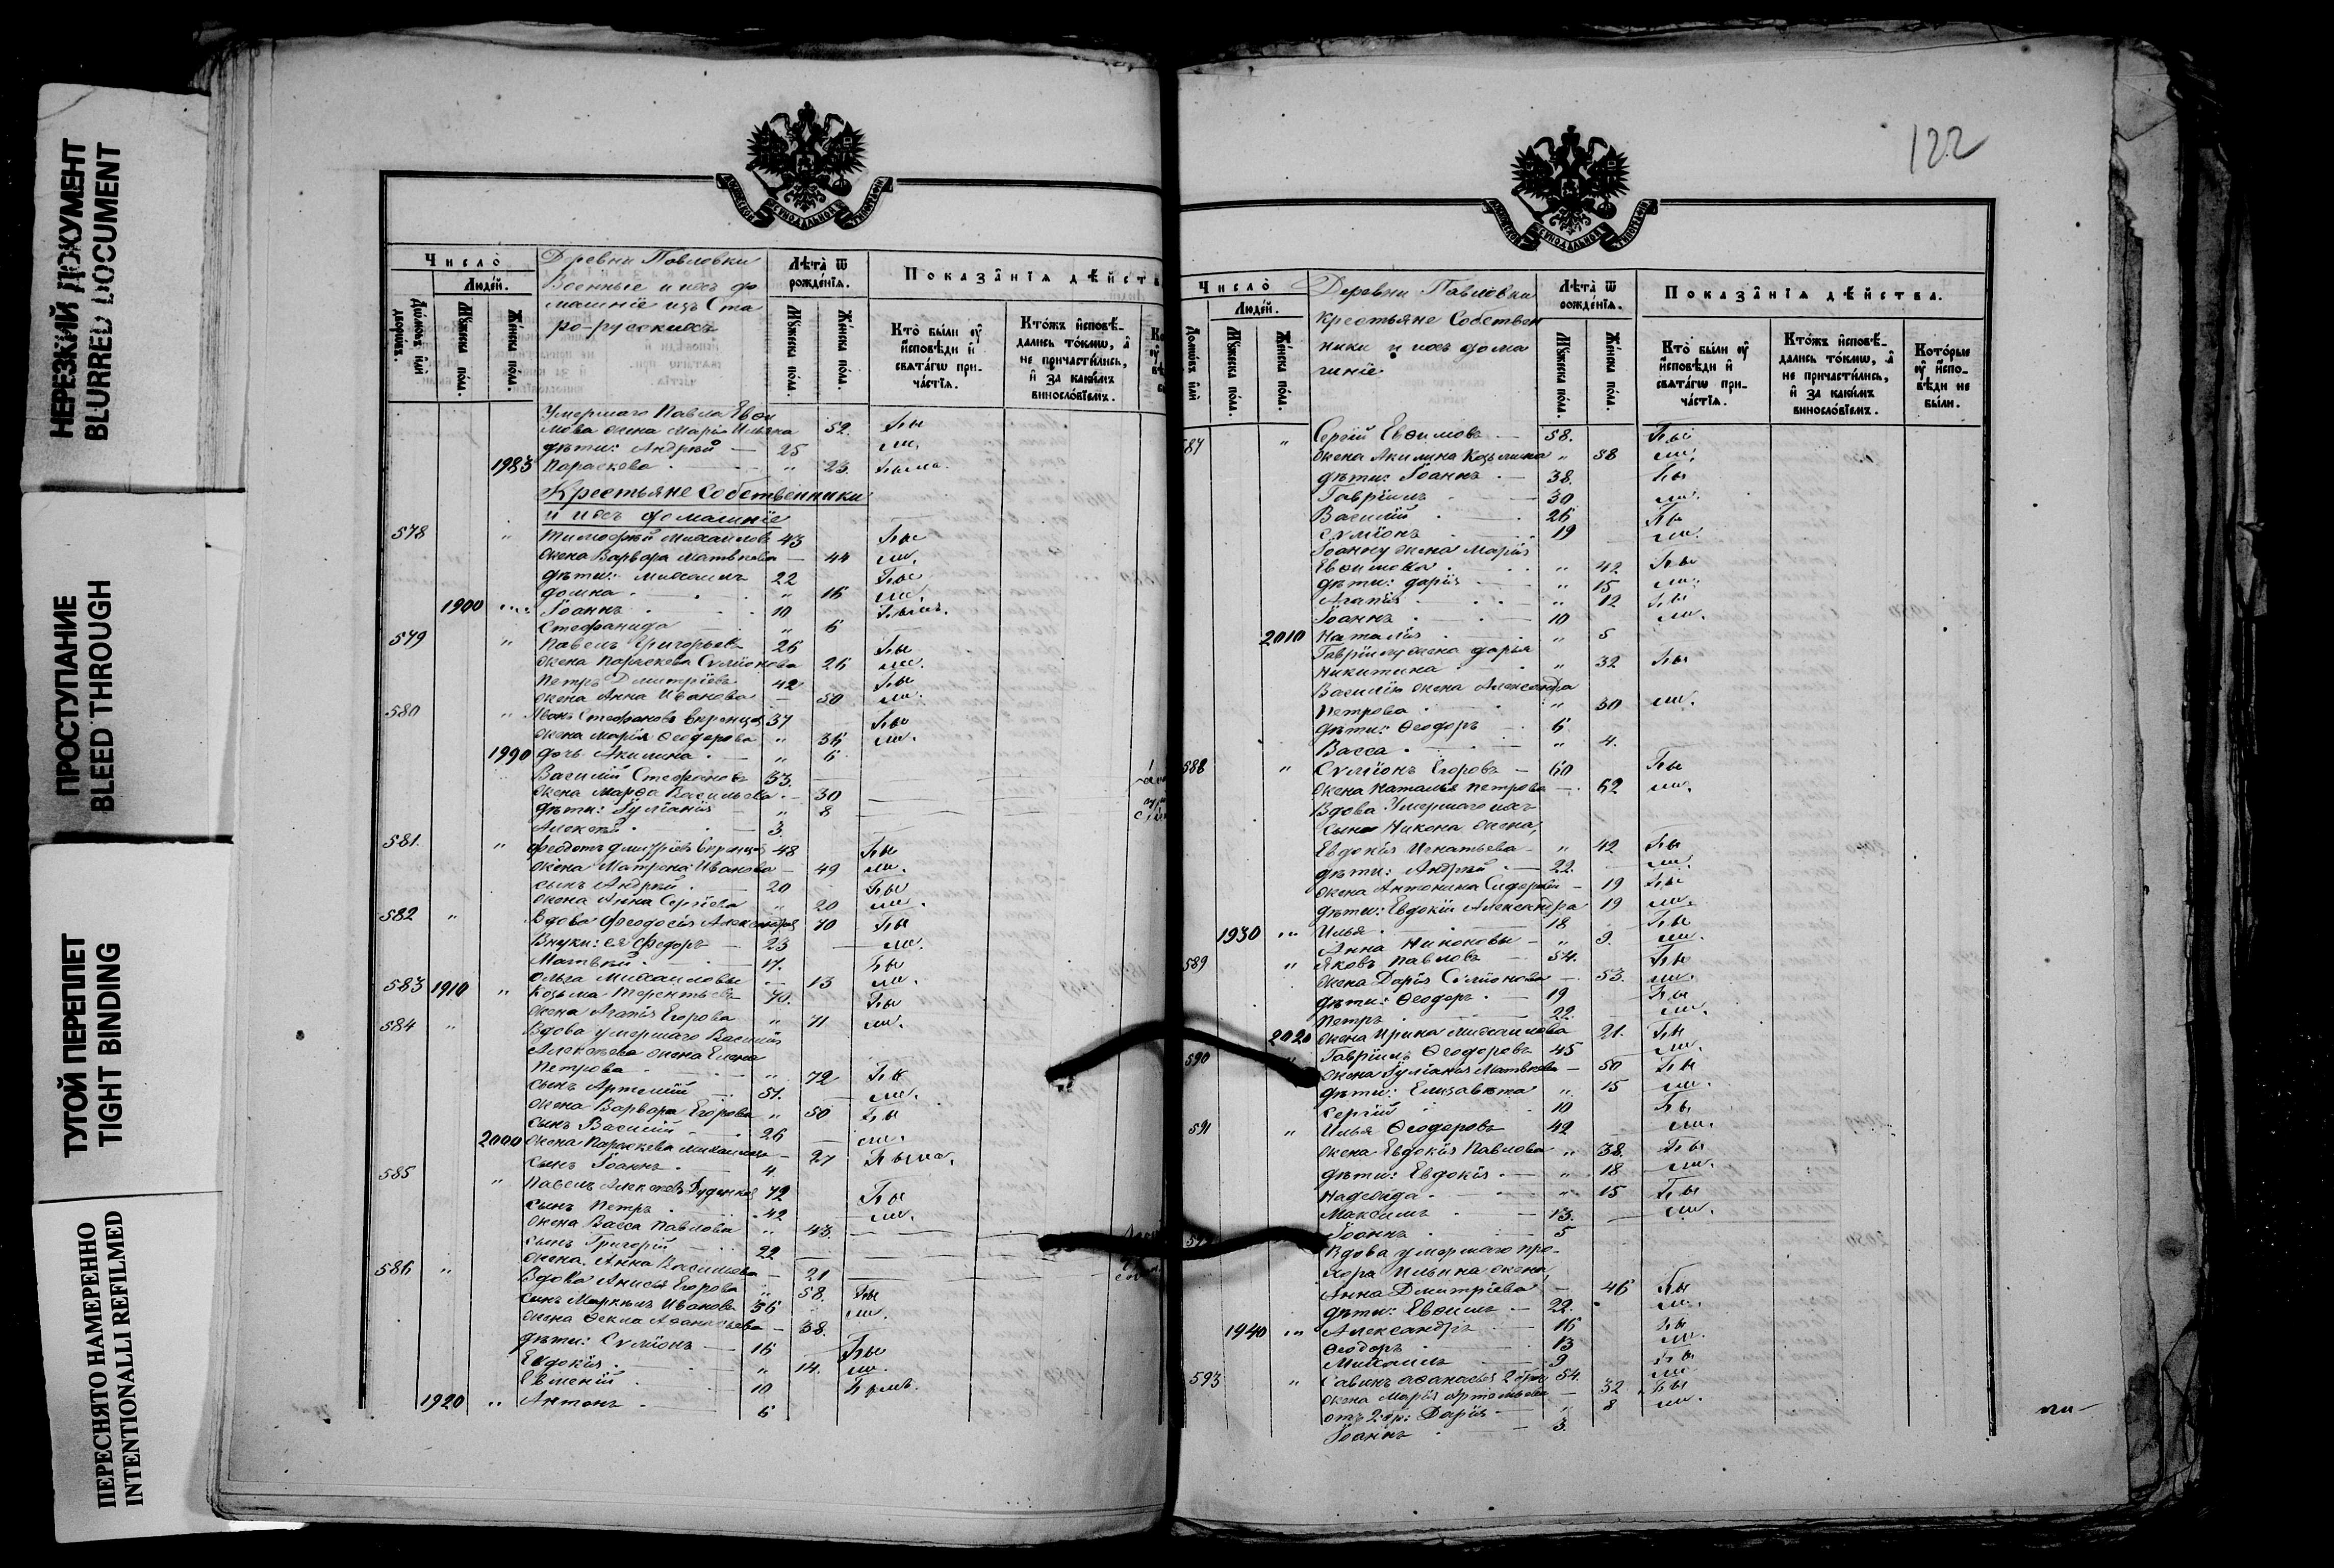 НЕРЕЗКИЙ ДОКУМЕНТ
BLURRED DOCUMENT
ПРОСТУПАНИЕ
BLEED THROUGH
ТУГОЙ ПЕРЕПЛЕТ
TIGHT BINDING
ПЕРЕСНЯТО НАМЕРЕННО
INTENTIONALLI REFILMED
Число
Людей.
Домовъ или дворовъ.
Мужеска пола.
Женска пола.
Деревни Павловки
Военные и ихъ до
машніе изъ Ста
ро-русскихъ
Лѣта ѿ рожденія.
Мужеска пола.
Женска пола.
Показанія дѣйств
Кто были ѹ исповѣди и свѧтагѡ причастія.
Ктожъ исповѣдались токмѡ, а не причастились, и за какимъ винословіемъ.
Умершаго Павла Евѳи
мова жена Марія Ильина 52. бы
дѣти: Андрей 25 ли.
1983 Параскева " 23. была.
Крестьяне Собственники
и ихъ домашніе
578 " Тимоѳей Михаиловъ 43 бы
жена Варвара Матвѣева 44 ли.
дѣти: Михаилъ 22 бы
домна " 16 ли.
1900 "" Іоаннъ 10 былъ.
Стефанида " 6
579 " Павелъ Григорьевъ 26 бы
жена Параскева Сѵмеонова 26 ли.
Петръ Дмитріевъ 42 бы
жена Анна Иванова 50 ли.
580 " Стефановъ 37 бы
жена Марія Ѳеодорова " 36 ли.
1990 дочь Акилина " 6
Василій Стефановъ 33.
жена Марѳа Васильева 30
дѣти: Іуліанія " 8
Алексѣй 3.
581. " Ѳеодотъ Дмитріевъ 48 бы
жена Матрона Иванова 49 ли.
сынъ Андрей 20 бы
жена Анна Сергіева " 20 ли.
582 " Вдова Ѳеодосія Александра 70 бы
Внуки: ея Ѳедоръ 23 ли.
Матвѣй 17. бы
Ольга Михаиловы 13 ли.
583 1910 " Козьма Терентьевъ 70. бы
жена Агапія Егорова " 71 ли.
584 " Вдова умершаго Василія
Алексѣева жена Елена
Петрова " 72 бы
сынъ Артемій 51. ли.
жена Варвара Егорова " 50 бы
сынъ Василій 26 ли.
2000 жена Параскева Михаилова 27 была.
сынъ Іоаннъ 4
585 " Павелъ Алексѣевъ 72 бы
сынъ Петръ 42 ли.
жена Васса Павлова " 43.
сынъ Григорій 22
жена Анна Васильева 21
586 " Вдова Анисья Егорова " 58. бы
сынъ Маркелъ Ивановъ 36 ли.
жена Ѳекла Аѳанасьева 38.
дѣти: Сѵмеонъ 16 бы
Евдокія " 14. ли.
Евменій 10 былъ.
1920 " Антонъ 6
122
Число
Людей.
Домовъ или
Мужеска пола.
Женска пола.
Деревни Павловки
крестьяне Собствен
ники и ихъ дома
шніе
Лѣта ѿ рожденія.
Мужеска пола.
Женска пола.
Показанія дѣйства.
Кто были ѹ исповѣди и свѧтагѡ причастія.
Ктожъ исповѣдались токмѡ, а не причастились, и за какимъ винословіемъ.
Которые ѹ исповѣди не были.
587 " Сергій Евѳимовъ 58. бы
жена Акилина Козьмина " 58 ли.
дѣти: Іоаннъ 38. бы
Гавріилъ 30 ли.
Василій 26 бы
Сѵмеонъ 19 ли.
Іоанну жена Марія
Евѳимова " 42 бы
дѣти: Дарія " 15 ли.
Агапія " 12 бы
Іоаннъ 10 ли.
2010 Наталія " 5
Гавріилу жена Дарья
Никитина " 32 бы
Василію жена Александра
Петрова " 30 ли.
дѣти: Ѳеодоръ 6
Васса " 4.
588 " Сѵмеонъ Егоровъ 60 бы
жена Наталья Петрова 62 ли.
Вдова Умершаго ихъ
сына Никона жена,
Евдокія Игнатьева " 42 бы
дѣти: Андрей 22. ли.
жена Антонина 19 бы
дѣти: Евдокія Александра 19 ли.
1930 "" Илья 18 бы
Анна Никоновы " 9. ли.
589 " Яковъ Павловъ 54. бы
жена Дарія Сѵмеонова 53. ли.
дѣти: Ѳеодоръ 19 бы
Петръ 22. ли.
2020 жена Ирина Михаилова 21. бы
590 Гавріилъ Ѳеодоровъ 45 ли.
жена Іуліанія Матвѣева 50 бы
дѣти: Елизавета " 15 ли.
Сергій 10 бы
591 " Илья Ѳеодоровъ 42 ли.
жена Евдокія Павлова " 38. бы
дѣти: Евдокія " 18 ли.
Надежда " 15 бы
Максимъ 13. ли.
Іоаннъ 5
Вдова умершаго Про-
хора Ильина жена,
Анна Дмитріева 46 бы
дѣти: Евѳимъ 22. ли.
1940 "" Александръ 16 бы
Ѳеодоръ 13 ли.
Михаилъ 9 бы
593 " Савинъ Аѳанасьев 2 бр: 54. ли
жена Марія Артемьева 32 бы
отъ 2 бр: Дарія " 8 ли.
Іоаннъ 3.